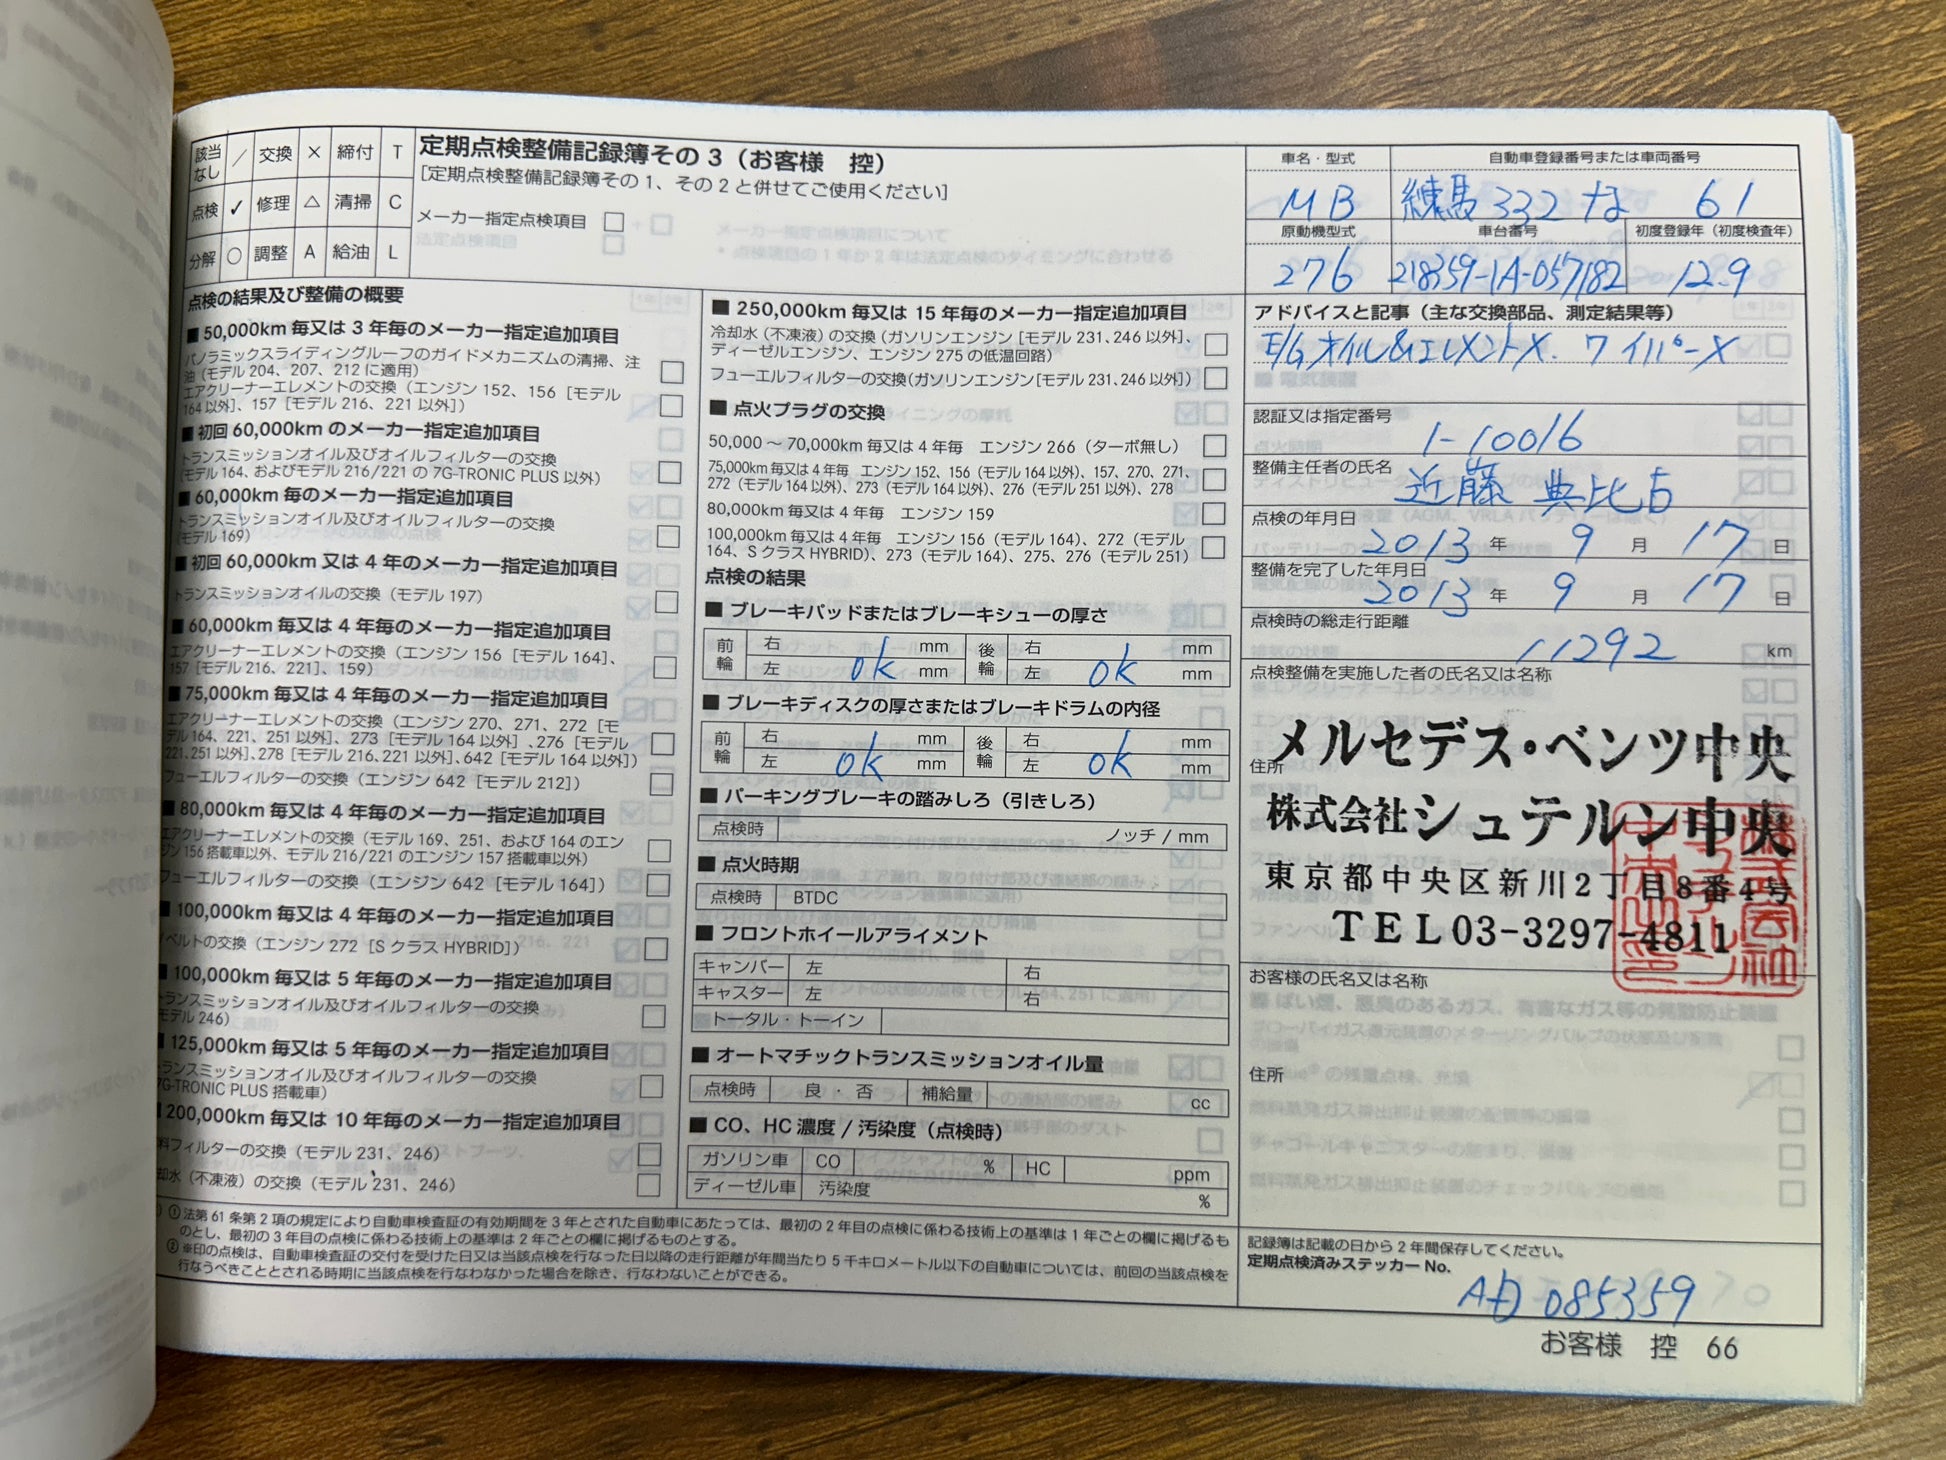 該当なし ／ 交換 × 締付 T
点検 ✓ 修理 △ 清掃 C
分解 ○ 調整 A 給油 L
定期点検整備記録簿その3（お客様　控）
［定期点検整備記録簿その1、その2と併せてご使用ください］
メーカー指定点検項目 □
点検の結果及び整備の概要
■ 50,000km 毎又は 3 年毎のメーカー指定追加項目
パノラミックスライディングルーフのガイドメカニズムの清掃、注
油（モデル 204、207、212 に適用）
エアクリーナーエレメントの交換（エンジン 152、156［モデル
164 以外］、157［モデル 216、221 以外］）
■ 初回 60,000km のメーカー指定追加項目
トランスミッションオイル及びオイルフィルターの交換
（モデル 164、およびモデル 216/221 の 7G-TRONIC PLUS 以外）
■ 60,000km 毎のメーカー指定追加項目
トランスミッションオイル及びオイルフィルターの交換
（モデル 169）
■ 初回 60,000km 又は 4 年のメーカー指定追加項目
トランスミッションオイルの交換（モデル 197）
■ 60,000km 毎又は 4 年毎のメーカー指定追加項目
エアクリーナーエレメントの交換（エンジン 156［モデル 164］、
157［モデル 216、221］、159）
■ 75,000km 毎又は 4 年毎のメーカー指定追加項目
エアクリーナーエレメントの交換（エンジン 270、271、272［モ
デル 164、221、251 以外］、273［モデル 164 以外］、276［モデル
221、251 以外］、278［モデル 216、221 以外］、642［モデル 164 以外］）
フューエルフィルターの交換（エンジン 642［モデル 212］）
■ 80,000km 毎又は 4 年毎のメーカー指定追加項目
エアクリーナーエレメントの交換（モデル 169、251、および 164 のエン
ジン 156 搭載車以外、モデル 216/221 のエンジン 157 搭載車以外）
フューエルフィルターの交換（エンジン 642［モデル 164］）
■ 100,000km 毎又は 4 年毎のメーカー指定追加項目
ベルトの交換（エンジン 272［S クラス HYBRID］）
■ 100,000km 毎又は 5 年毎のメーカー指定追加項目
トランスミッションオイル及びオイルフィルターの交換
（モデル 246）
■ 125,000km 毎又は 5 年毎のメーカー指定追加項目
トランスミッションオイル及びオイルフィルターの交換
7G-TRONIC PLUS 搭載車）
■ 200,000km 毎又は 10 年毎のメーカー指定追加項目
フィルターの交換（モデル 231、246）
（不凍液）の交換（モデル 231、246）
■ 250,000km 毎又は 15 年毎のメーカー指定追加項目
冷却水（不凍液）の交換（ガソリンエンジン［モデル 231、246 以外］、
ディーゼルエンジン、エンジン 275 の低温回路）
フューエルフィルターの交換（ガソリンエンジン［モデル 231、246 以外］）
■ 点火プラグの交換
50,000 ～ 70,000km 毎又は 4 年毎　エンジン 266（ターボ無し）
75,000km 毎又は 4 年毎　エンジン 152、156（モデル 164 以外）、157、270、271、
272（モデル 164 以外）、273（モデル 164 以外）、276（モデル 251 以外）、278
80,000km 毎又は 4 年毎　エンジン 159
100,000km 毎又は 4 年毎　エンジン 156（モデル 164）、272（モデル
164、S クラス HYBRID）、273（モデル 164）、275、276（モデル 251）
点検の結果
■ ブレーキパッドまたはブレーキシューの厚さ
前輪 右 mm 後輪 右 mm
左 ok mm 左 ok mm
■ ブレーキディスクの厚さまたはブレーキドラムの内径
前輪 右 mm 後輪 右 mm
左 ok mm 左 ok mm
■ パーキングブレーキの踏みしろ（引きしろ）
点検時 ノッチ / mm
■ 点火時期
点検時 BTDC
■ フロントホイールアライメント
キャンバー 左 右
キャスター 左 右
トータル・トーイン
■ オートマチックトランスミッションオイル量
点検時 良 ・ 否 補給量 cc
■ CO、HC 濃度 / 汚染度（点検時）
ガソリン車 CO % HC ppm
ディーゼル車 汚染度 %
① 法第 61 条第 2 項の規定により自動車検査証の有効期間を 3 年とされた自動車にあたっては、最初の 2 年目の点検に係わる技術上の基準は 1 年ごとの欄に掲げるも
のとし、最初の 3 年目の点検に係わる技術上の基準は 2 年ごとの欄に掲げるものとする。
② ※印の点検は、自動車検査証の交付を受けた日又は当該点検を行なった日以降の走行距離が年間当たり 5 千キロメートル以下の自動車については、前回の当該点検を
行なうべきこととされる時期に当該点検を行なわなかった場合を除き、行なわないことができる。
車名・型式 自動車登録番号または車両番号
MB 練馬 332 な 61
原動機型式 車台番号 初度登録年（初度検査年）
276 218359-1A-057182 12.9
アドバイスと記事（主な交換部品、測定結果等）
E/Gオイル&エレメントX. ワイパーX
認証又は指定番号
1-10016
整備主任者の氏名
近藤 典比古
点検の年月日
2013 年 9 月 17 日
整備を完了した年月日
2013 年 9 月 17 日
点検時の総走行距離
11292 km
点検整備を実施した者の氏名又は名称
メルセデス・ベンツ中央
住所
株式会社シュテルン中央
東京都中央区新川2丁目8番4号
TEL03-3297-4811
お客様の氏名又は名称
住所
記録簿は記載の日から 2 年間保存してください。
定期点検済みステッカー No.
AD 085359
お客様　控　66